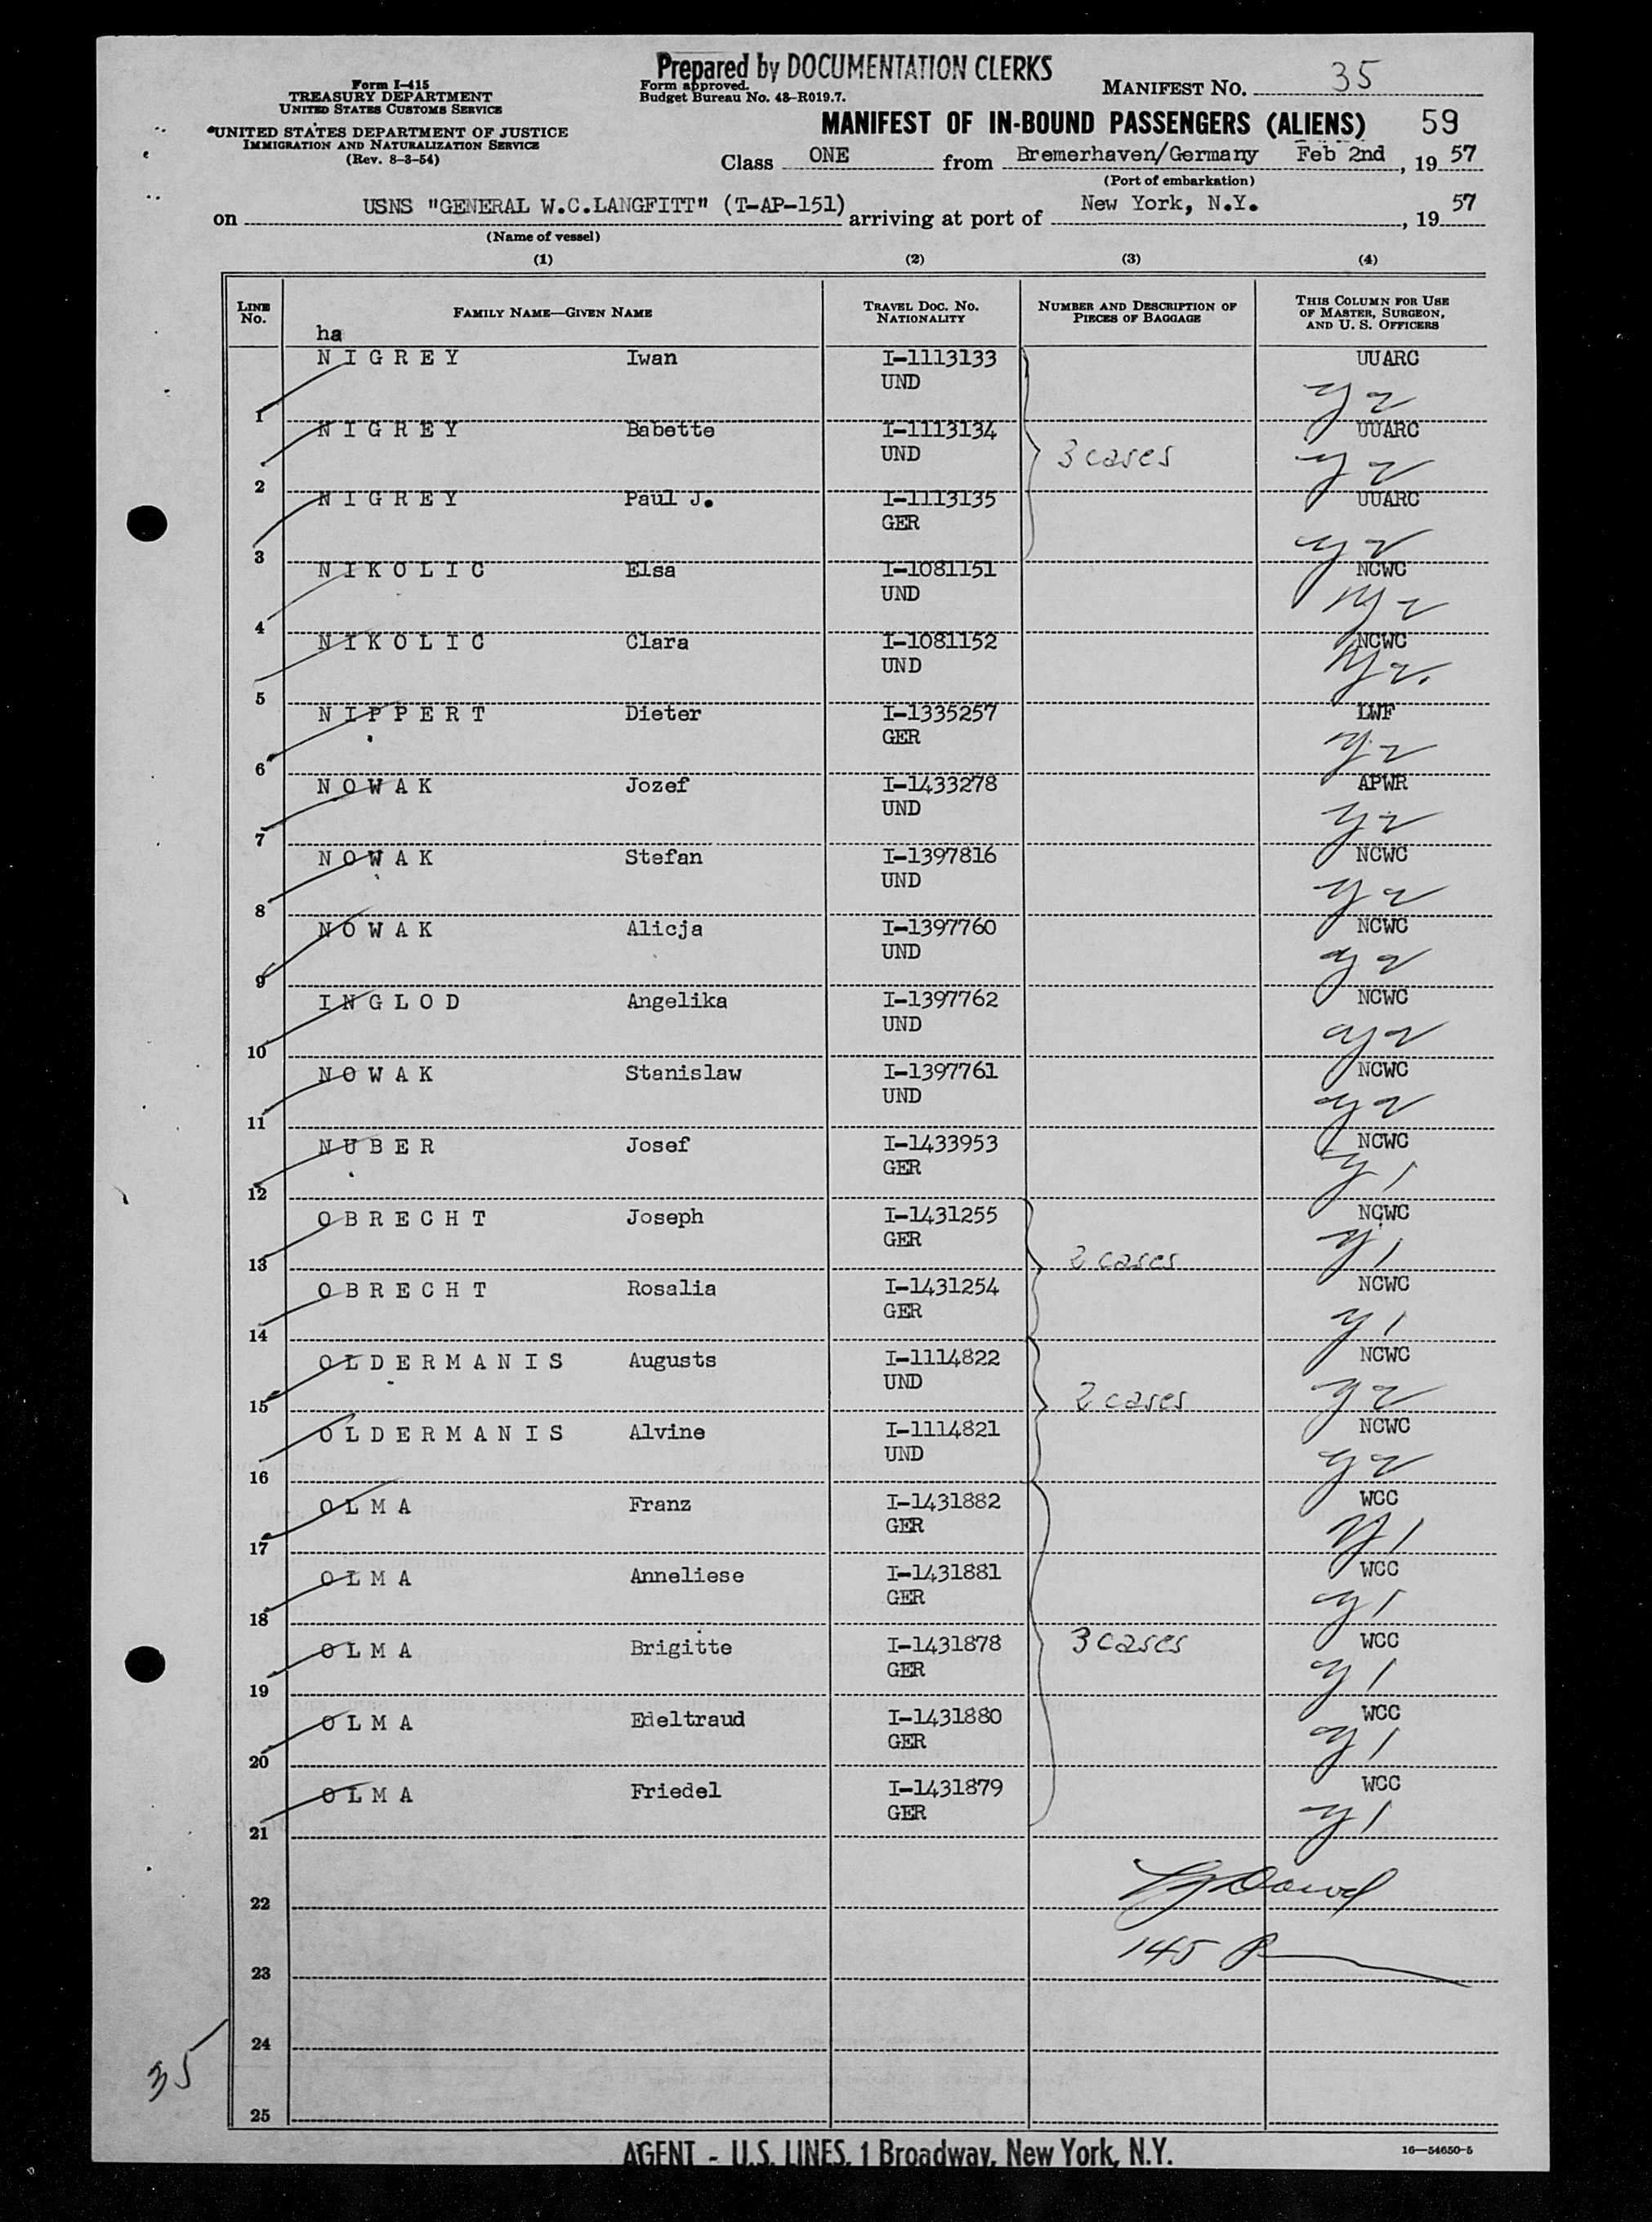 Prepared by DOCUMENTATION CLERKS
Form I-415
TREASURY DEPARTMENT
UNITED STATES CUSTOMS SERVICE
UNITED STATES DEPARTMENT OF JUSTICE
IMMIGRATION AND NATURALIZATION SERVICE
(Rev. 8-3-54)
Form approved.
Budget Bureau No. 43-R019.7.
MANIFEST NO. 35
MANIFEST OF IN-BOUND PASSENGERS (ALIENS) 59
Class ONE from Bremerhaven/Germany Feb 2nd, 19 57
(Port of embarkation)
on USNS "GENERAL W.C.LANGFITT" (T-AP-151) arriving at port of New York, N.Y. , 19 57
(Name of vessel)
(1) (2) (3) (4)
LINE No. FAMILY NAME—GIVEN NAME TRAVEL DOC. NO. NATIONALITY NUMBER AND DESCRIPTION OF PIECES OF BAGGAGE THIS COLUMN FOR USE OF MASTER, SURGEON, AND U. S. OFFICERS
ha
1 NIGREY Iwan I-1113133 UND UUARC
2 NIGREY Babette I-1113134 UND 3 cases UUARC
3 NIGREY Paul J. I-1113135 GER UUARC
4 NIKOLIC Elsa I-1081151 UND NCWC
5 NIKOLIC Clara I-1081152 UND NCWC
6 NIPPERT Dieter I-1335257 GER LWF
7 NOWAK Jozef I-1433278 UND APWR
8 NOWAK Stefan I-1397816 UND NCWC
9 NOWAK Alicja I-1397760 UND NCWC
10 INGLOD Angelika I-1397762 UND NCWC
11 NOWAK Stanislaw I-1397761 UND NCWC
12 NUBER Josef I-1433953 GER NCWC
13 OBRECHT Joseph I-1431255 GER 2 cases NCWC
14 OBRECHT Rosalia I-1431254 GER NCWC
15 OLDERMANIS Augusts I-1114822 UND 2 cases NCWC
16 OLDERMANIS Alvine I-1114821 UND NCWC
17 OLMA Franz I-1431882 GER WCC
18 OLMA Anneliese I-1431881 GER WCC
19 OLMA Brigitte I-1431878 GER 3 cases WCC
20 OLMA Edeltraud I-1431880 GER WCC
21 OLMA Friedel I-1431879 GER WCC
22
23 145
24
25
35
AGENT - U.S. LINES, 1 Broadway, New York, N.Y.
16—54650-5